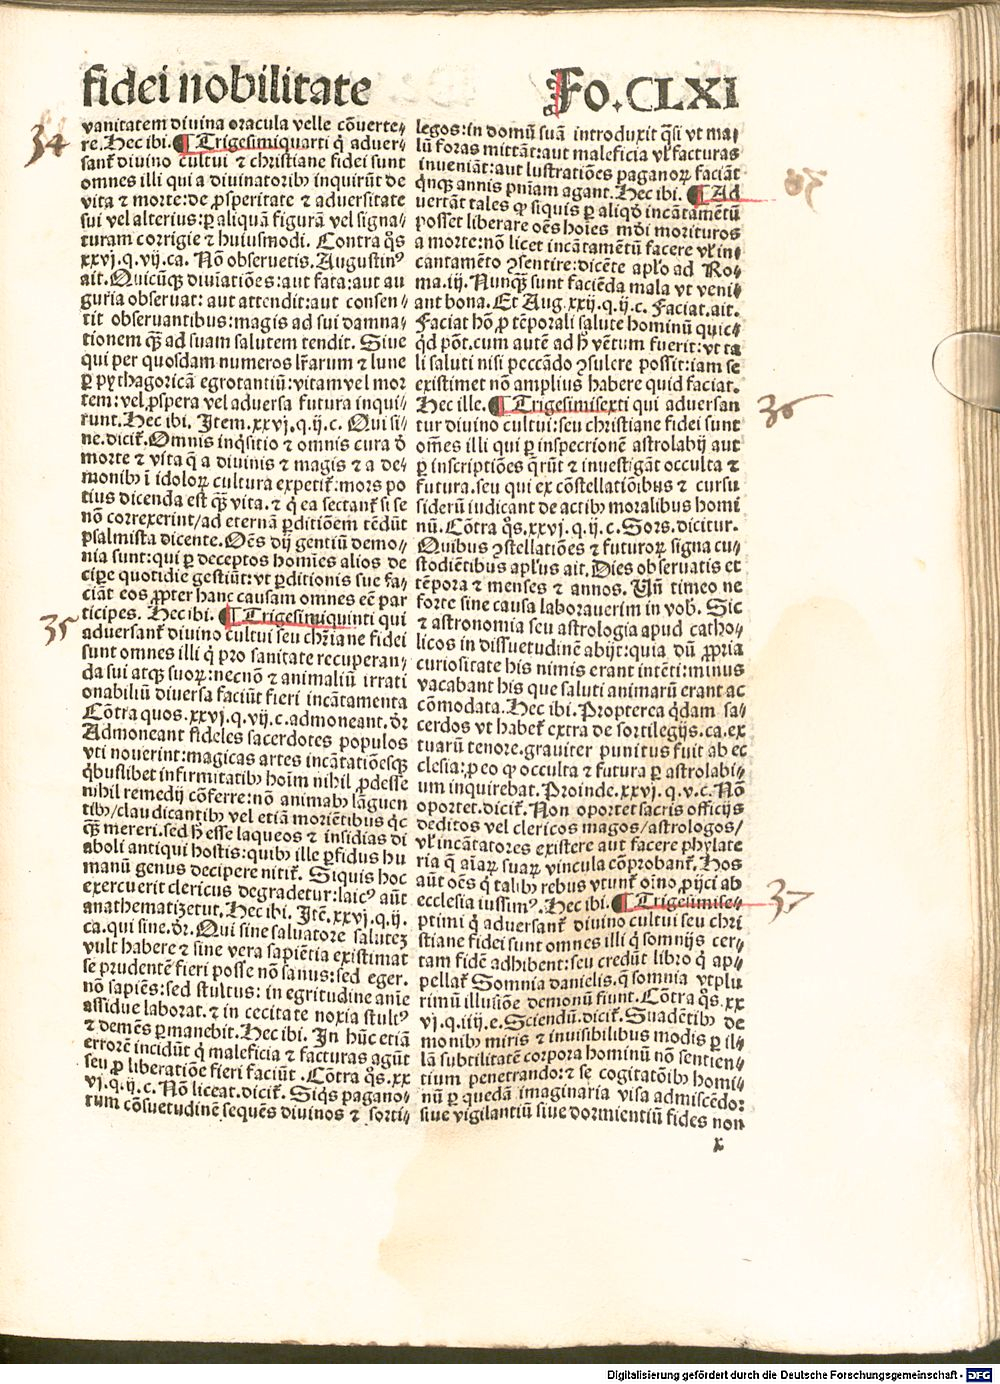 fidei nobilitate
Fo. CLXI
vanitatem divina oracula velle cōuerte⸗
re. Hec ibi. ¶ Trigesimiquarti q̇ aduer⸗
sant᷑ divino cultui ⁊ christiane fidei sunt
omnes illi qui a divinatoribꝰ inquirūt de
vita ⁊ morte: de ꝓsperitate ⁊ aduersitate
sui vel alterius: ꝑ aliquā figurā vel signa⸗
turam corrigie ⁊ huiusmodi. Contra q̊s
xxvj. q. vij. ca. Nō obseruetis. Augustinꝰ
ait. Quicūqꝫ diuīatiōes: aut fata: aut au
guria obseruat: aut attendit: aut consen⸗
tit obseruantibus: magis ad sui damna⸗
tionem qꝫ̄ ad suam salutem tendit. Siue
qui per quosdam numeros lr̄arum ⁊ lune
ꝑ pythagoricā egrotantiū: vitam vel mor
tem: vel ꝓspera vel aduersa futura inqui⸗
runt. Hec ibi. Item. xxvj. q. ij. c. Qui si⸗
ne. dicit᷑. Omnis inq̇sitio ⁊ omnis cura ð
morte ⁊ vita q̄ a divinis ⁊ magis ⁊ a de⸗
monibꝰ ī idoloꝝ cultura expetit᷑: mors po
tius dicenda est qꝫ̄ vita. ⁊ q̇ ea sectant᷑ si se
nō correxerint/ad eternā ꝑditiōem tēdūt
psalmista dicente. Oēs dij gentiū demo⸗
nia sunt: qui ꝑ deceptos homīes alios de
ciꝑe quotidie gestiūt: vt ꝑditionis sue fa⸗
ciāt eos ꝓpter hanc causam omnes eē par
ticipes. Hec ibi. ¶ Trigesimiquinti qui
aduersant᷑ divino cultui seu chr̄iane fidei
sunt omnes illi q̇ pro sanitate recuperan⸗
da sui atqꝫ suoꝝ: necnō ⁊ animaliū irrati
onabiliū diuersa faciūt fieri incātamenta
Cōtra quos. xxvj. q. vij. c. admoneant. ðr
Admoneant fideles sacerdotes populos
vti nouerint: magicas artes incātatiōesqꝫ
q̇buslibet infirmitatibꝰ hoīm nihil ꝓdesse
nihil remedij cōferre: nō animabꝰ lāguen
tibꝰ/claudicantibꝰ vel etiā moriētibus q̇c
qꝫ̄ mereri. sed hꝭ esse laqueos ⁊ insidias di
aboli antiqui hostis: quibꝰ ille ꝑfidus hu
manū genus decipere nitit᷑. Siquis hoc
exercuerit clericus degradetur: laicꝰ aūt
anathematizetut. Hec ibi. Itē. xxvj. q. ij.
ca. qui sine. ðr. Qui sine saluatore salutez
vult habere ⁊ sine vera sapiētia existimat
se prudentē fieri posse nō sanus: sed eger.
nō sapiēs: sed stultus: in egritudine anīe
assidue laborat. ⁊ in cecitate noxia stultꝰ
⁊ demēs ꝑmanebit. Hec ibi. In hūc etiā
errorē incidūt q̇ maleficia ⁊ facturas agūt
seu ꝓ liberatiōe fieri faciūt. Cōtra q̊s. xx
vj. q. ij. c. Nō liceat. dicit᷑. Siq̇s pagano⸗
rum cōsuetudinē sequēs divinos ⁊ sorti⸗
legos: in domū suā introduxit q̄si vt ma⸗
lū foras mittāt: aut maleficia vl̕ facturas
inueniāt: aut lustratiōes paganoꝝ faciāt
q̇nqꝫ annis pn̄iam agant. Hec ibi. ¶ Ad
uertāt tales ꝙ siquis ꝑ aliqð incātamētū
posset liberare oēs hoīes mūdi morituros
a morte: nō licet incātamētū facere vl̕ in⸗
cantamēto ꝯsentire: dicēte apl̕o ad Ro⸗
ma. iij. Nunqꝫ̄ sunt faciēda mala vt veni⸗
ant bona. Et Aug. xxij. q. ij. c. Faciat. ait.
Faciat hō ꝓ tēporali salute hominū quic⸗
q̇d pōt. cum autē ad hꝭ vētum fuerit: vt ta
li saluti nisi peccādo ꝯsulere possit: iam se
existimet nō amplius habere quid faciat.
Hec ille. ¶ Trigesimisexti qui aduersan
tur divino cultui: seu christiane fidei sunt
oм̄es illi qui ꝑ inspectionem astrolabij aut
ꝑ inscriptiōes q̄rūt ⁊ inuestigāt occulta ⁊
futura. seu qui ex cōstellatiōibus ⁊ cursu
siderū iudicant de actibꝰ moralibus homi
nū. Cōtra q̊s. xxvj. q. ij. c. Sors. dicitur.
Quibus ꝯstellatiōes ⁊ futuroꝝ signa cu⸗
stodiētibus apl̕us ait. Dies obseruatis et
tēpora ⁊ menses ⁊ annos. Un̄ timeo ne
forte sine causa laborauerim in vob̄. Sic
⁊ astronomia seu astrologia apud catho⸗
licos in dissuetudinē abijt: quia dū ꝓpria
curiositate his nimis erant intēti: minus
vacabant his que saluti animarū erant ac
cōmodata. Hec ibi. Propterea q̇dam sa⸗
cerdos vt habet᷑ extra de sortilegijs. ca. ex
tuarū tenore. grauiter punitus fuit ab ec
clesia: ꝓ eo ꝙ occulta ⁊ futura ꝑ astrolabi⸗
um inquirebat. Proinde. xxvj. q. v. c. Nō
oportet. dicit᷑. Non oportet sacris officijs
deditos vel clericos magos/astrologos/
vl̕ incātatores existere aut facere phylate
ria q̄ aīaꝝ suaꝝ vincula cōprobant᷑. Hos
aūt oēs q̇ talibꝰ rebus vtunt᷑ oīno ꝓijci ab
ecclesia iussimꝰ. Hec ibi. ¶ Trigesimise⸗
ptimi q̇ aduersant᷑ divino cultui seu chri
stiane fidei sunt omnes illi q̇ somnijs cer⸗
tam fidē adhibent: seu credūt libro q̇ ap⸗
pellat᷑ Somnia danielis. q̄ somnia vtplu
rimū illusiōe demonū fiunt. Cōtra q̊s. xx
vj. q. iiij. e. Sciendū. dicit᷑. Suadētibꝰ de
monibꝰ miris ⁊ inuisibilibus modis ꝑ il⸗
lā subtilitatē corpora hominū nō sentien⸗
tium penetrando: ⁊ se cogitatōibꝰ homi⸗
nū ꝑ quedā imaginaria visa admiscēdo:
siue vigilantiū siue dormientiū fides non
x
34
35
36
37
Digitalisierung gefördert durch die Deutsche Forschungsgemeinschaft - DFG